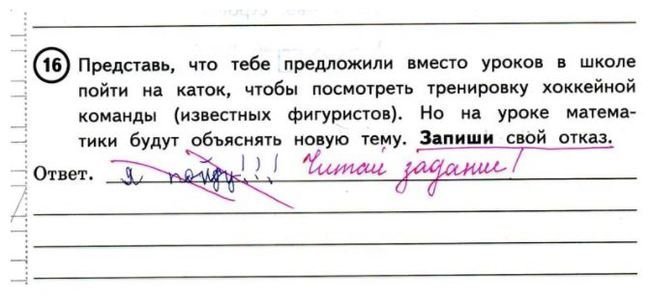 16 Представь, что тебе предложили вместо уроков в школе
пойти на каток, чтобы посмотреть тренировку хоккейной
команды (известных фигуристов). Но на уроке матема-
тики будут объяснять новую тему. Запиши свой отказ.
Ответ. я пойду!!! Читай задание!